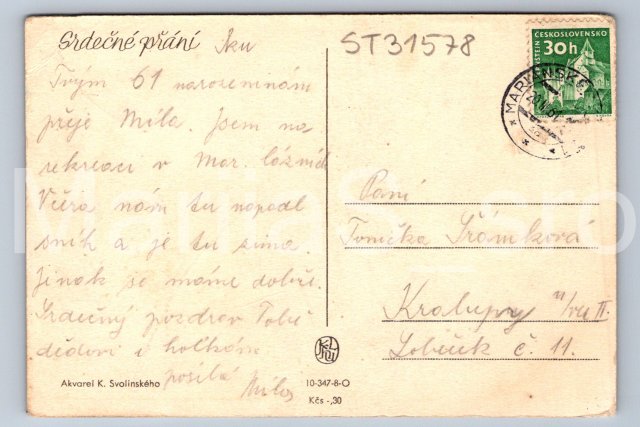 Srdečné přání
Tvým 61 narozeninám
přeje Míla. Jsem na
rekreaci v Mar. lázních
Včera nám tu napadl
sníh a je tu zima.
Jinak se máme dobře.
Srdečný pozdrav Tobě
dědovi i holkám
posílá
Míla
Akvarel K. Svolinského
ST31578
ČESKOSLOVENSKO
30h
MARIÁNSKÉ
Paní
Tonička Šrámková
Kralupy n/Vlt II.
Lobeček č. 11.
10-347-8-O
Kčs -,30